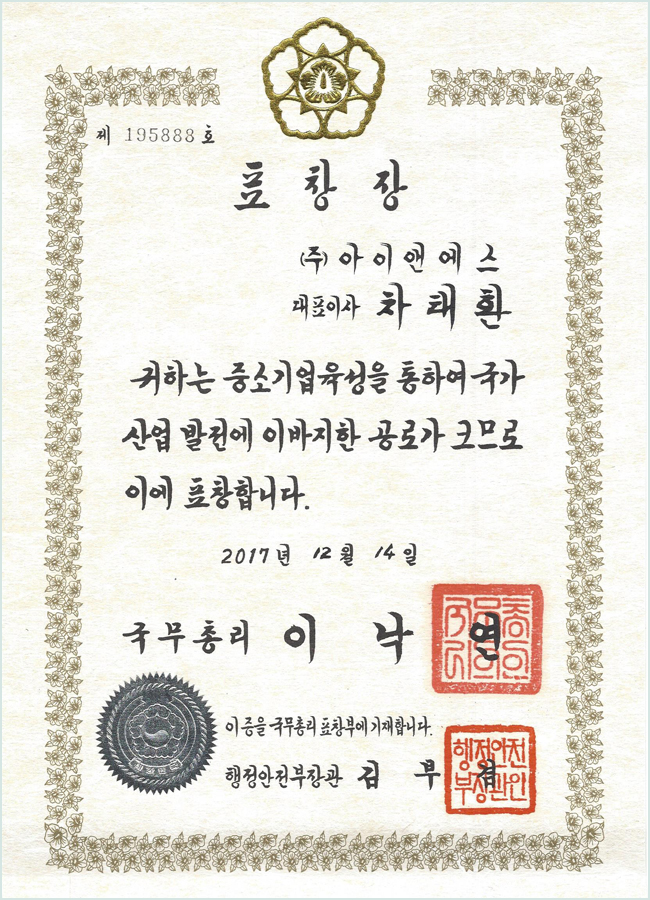 제 195888 호
표 창 장
(주) 아이앤에스
대표이사 차태환
귀하는 중소기업육성을 통하여 국가
산업 발전에 이바지한 공로가 크므로
이에 표창합니다.
2017년 12월 14일
국무총리 이 낙 연
이 증을 국무총리 표창부에 기재합니다.
행정안전부장관 김 부 겸
행정안전
부장관인